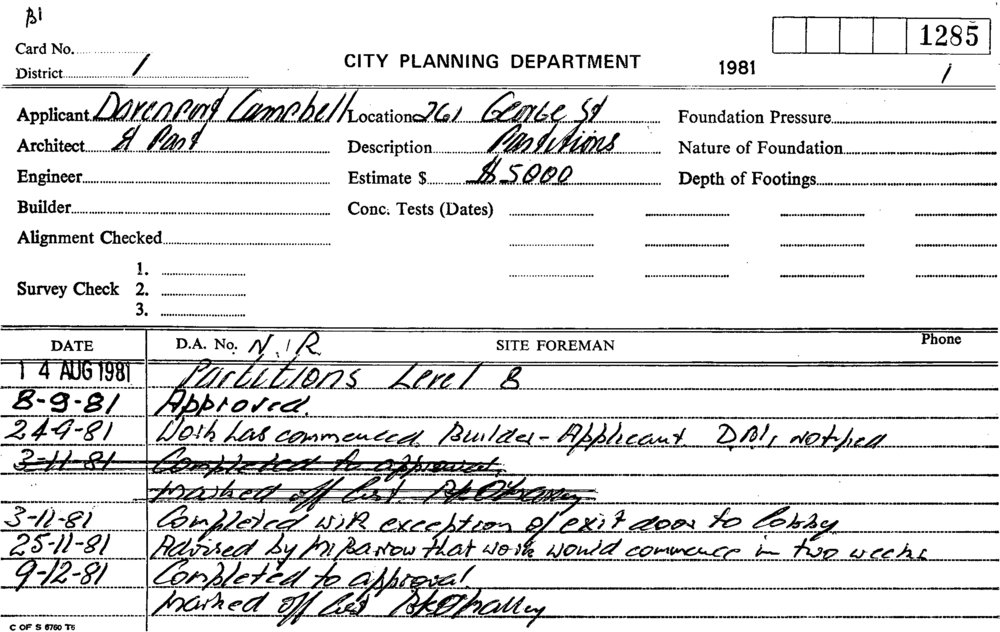 B1
Card No.
1285
District 1
CITY PLANNING DEPARTMENT
1981
1
Applicant Davenport Campbell Location 261 George St Foundation Pressure
Architect & Part Description Partitions Nature of Foundation
Engineer Estimate $ $5000 Depth of Footings
Builder Conc. Tests (Dates)
Alignment Checked
1.
Survey Check 2.
3.
DATE D.A. No. N.I.R. SITE FOREMAN Phone
14 AUG 1981 Partitions Level 8
8-9-81 Approved.
24-9-81 Work has commenced. Builder-Applicant D.B.I. notified
3-11-81 Completed to approval.
marked off list
3-11-81 Completed with exception of exit door to lobby
25-11-81 Advised by Mr Barrow that work would commence in two weeks
9-12-81 Completed to approval
marked off list
C OF S 6760 T6